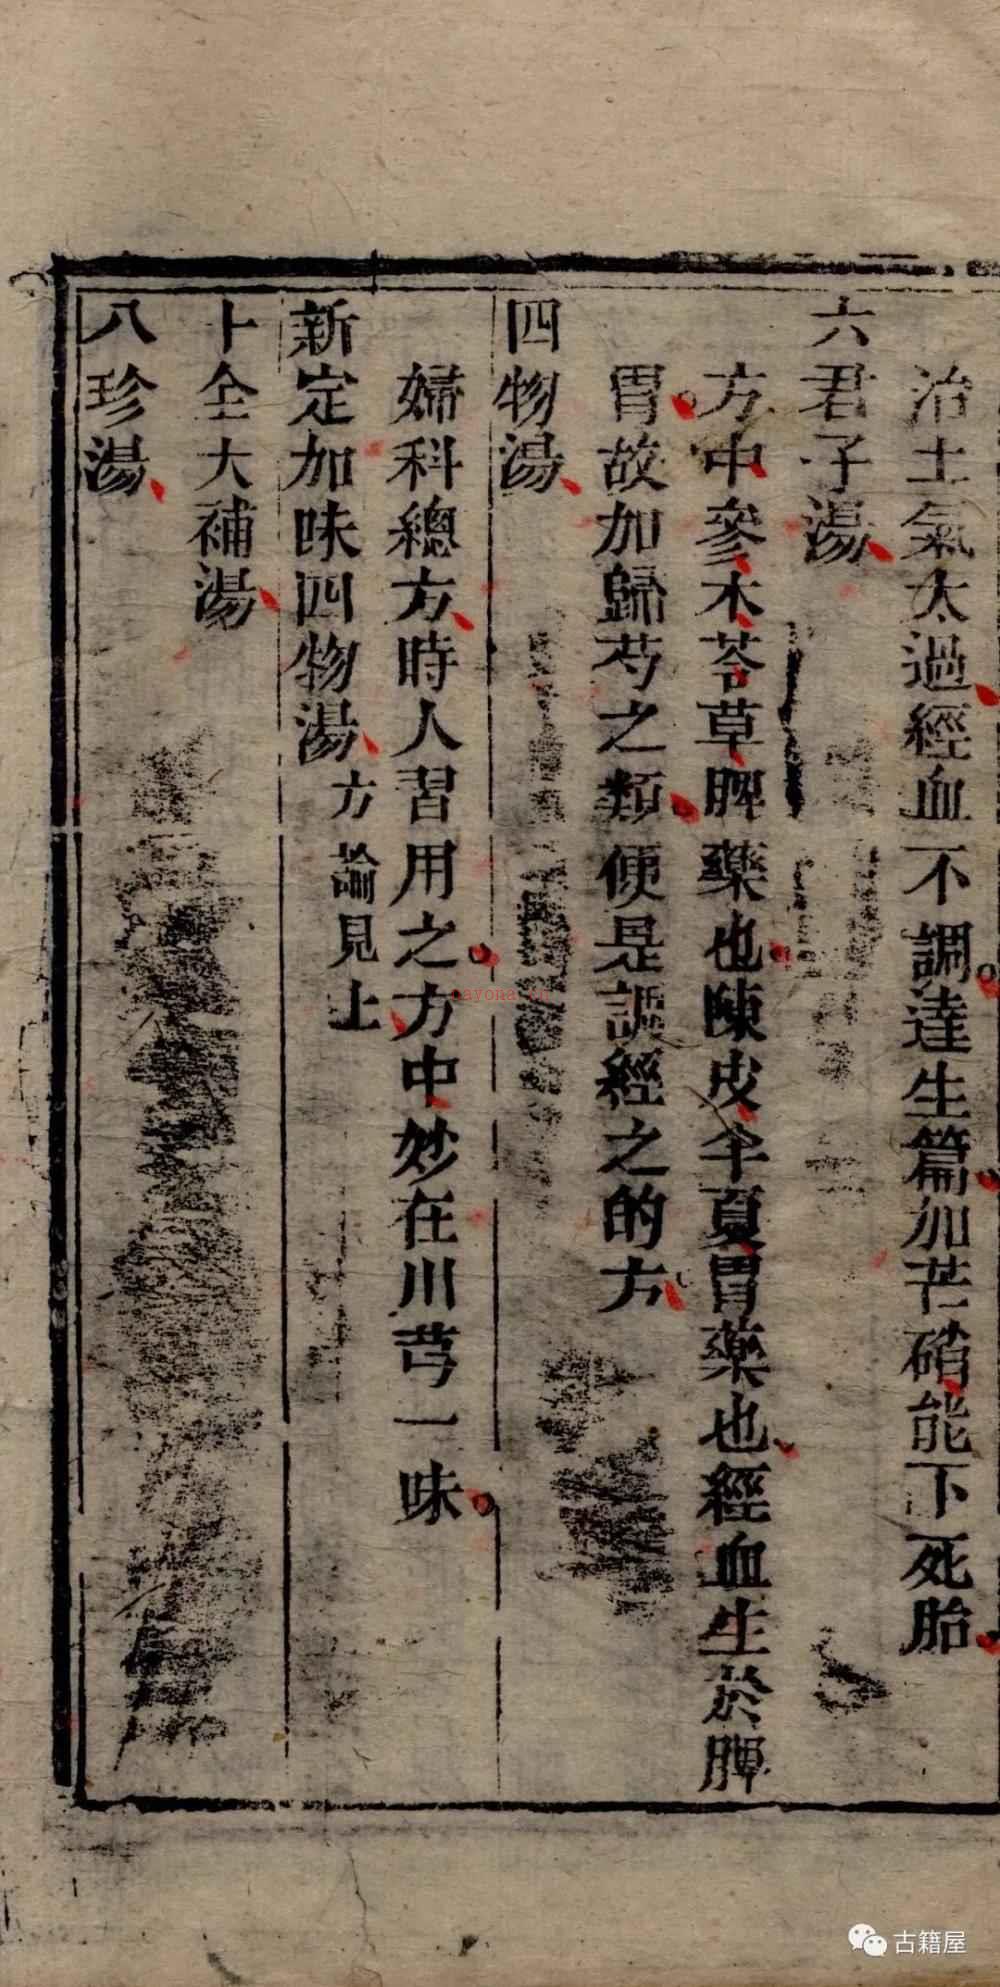 治土氣太過經血不調達生篇加芒硝能下死胎
六君子湯
方中參木苓草脾藥也陳皮半夏胃藥也經血生於脾
胃故加歸芍之類便是調經之的方
四物湯
婦科總方時人習用之方中妙在川芎一味
新定加味四物湯方論見上
十全大補湯
八珍湯
nayona.cn
古籍屋